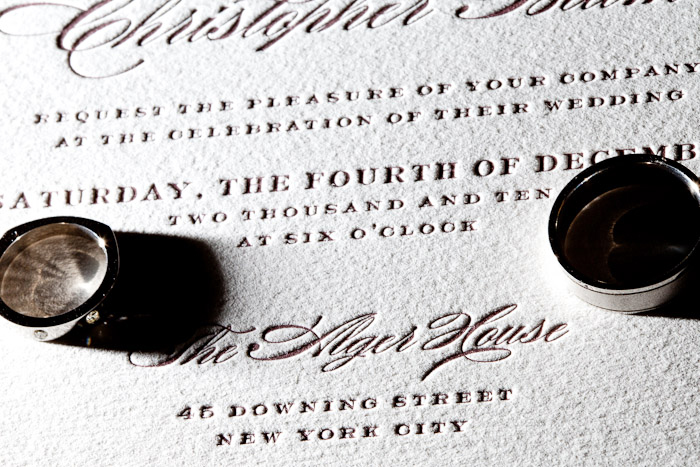 Christopher
REQUEST THE PLEASURE OF YOUR COMPANY
AT THE CELEBRATION OF THEIR WEDDING
SATURDAY, THE FOURTH OF DECEMB
TWO THOUSAND AND TEN
AT SIX O'CLOCK
The Alger House
45 DOWNING STREET
NEW YORK CITY